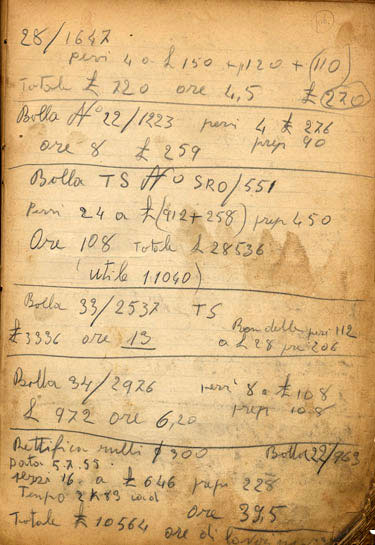 28/1647
pezzi 4 a £ 150 + p 120 + (110)
Totale £ 720 ore 4,5 £ 270
Bolla N° 22/1223 pezzi 4 £ 276
prep 90
ore 8 £ 259
Bolla TS N° SRO/551
Pezzi 24 a £ (912+258) prep 450
Ore 108 Totale £ 28536
(utile 11040)
Bolla 33/2537 TS
pezzi 112
£ 3336 ore 13 a £ 28 pre 206
Bolla 34/2976 pezzi 8 a £ 108
prep 108
£ 972 ore 6,20
Rettifica rulli 300 Bolla 22/763
Data 5.7.55.
pezzi 16 a £ 646 prep 228
Tempo
Ore 39,5
Totale £ 10564 ore di lavoro